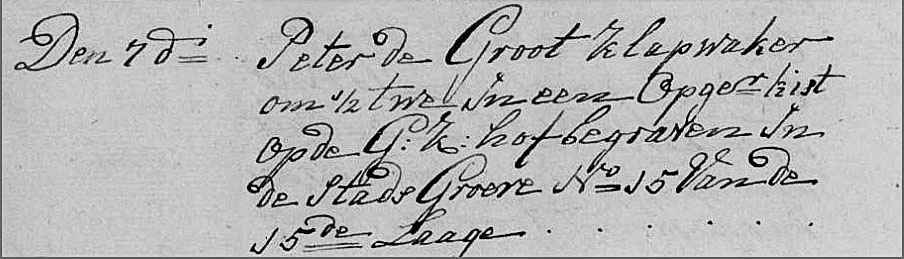 Den 7 di Peter de Groot klapwaker
om ½ twe in een Opger kist
op de G: K: hof begraven in
de Stads Groeve No 15 Van de
15de Laage . . . . . .